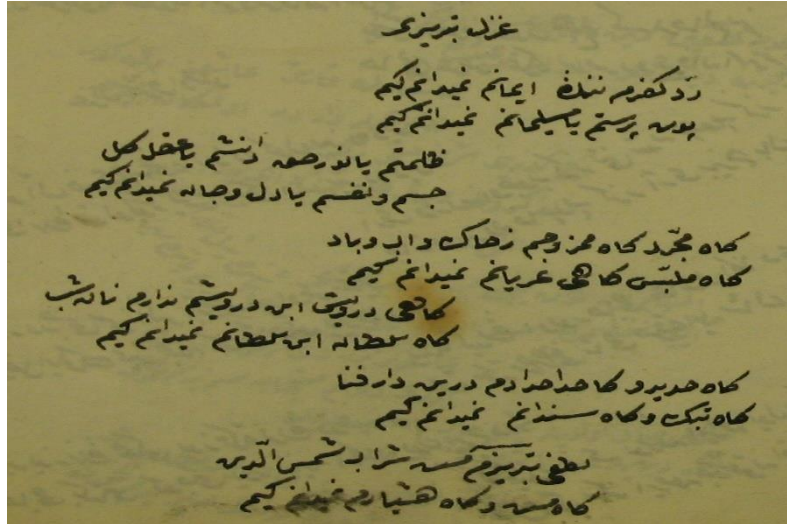 غزل تبریزی
رد کفرم ننکۀ ایمانم نمیدانم کیم
پوت پرستم یا مسیلمانم نمیدانم کیم
ظلمتم یا نور حق دانشم یا عقل کل
جسم و نفسم یا دل و جان نمیدانم کیم
کاه مجرّد کاه ممزوجم ز خاک و اب و باد
کاه ملبّس کاهی عریانم نمیدانم کیم
کاهی درویش ابن درویشم ندارم نان شب
کاه سلطان ابن سلطانم نمیدانم کیم
کاه حدید و کا حدادم درین دار فنا
کاه تبک و کاه سندانم نمیدانم کیم
لطفی تبریزم مست شراب شمس الّدین
کاه مست و کاه هشیارم نمیدانم کیم